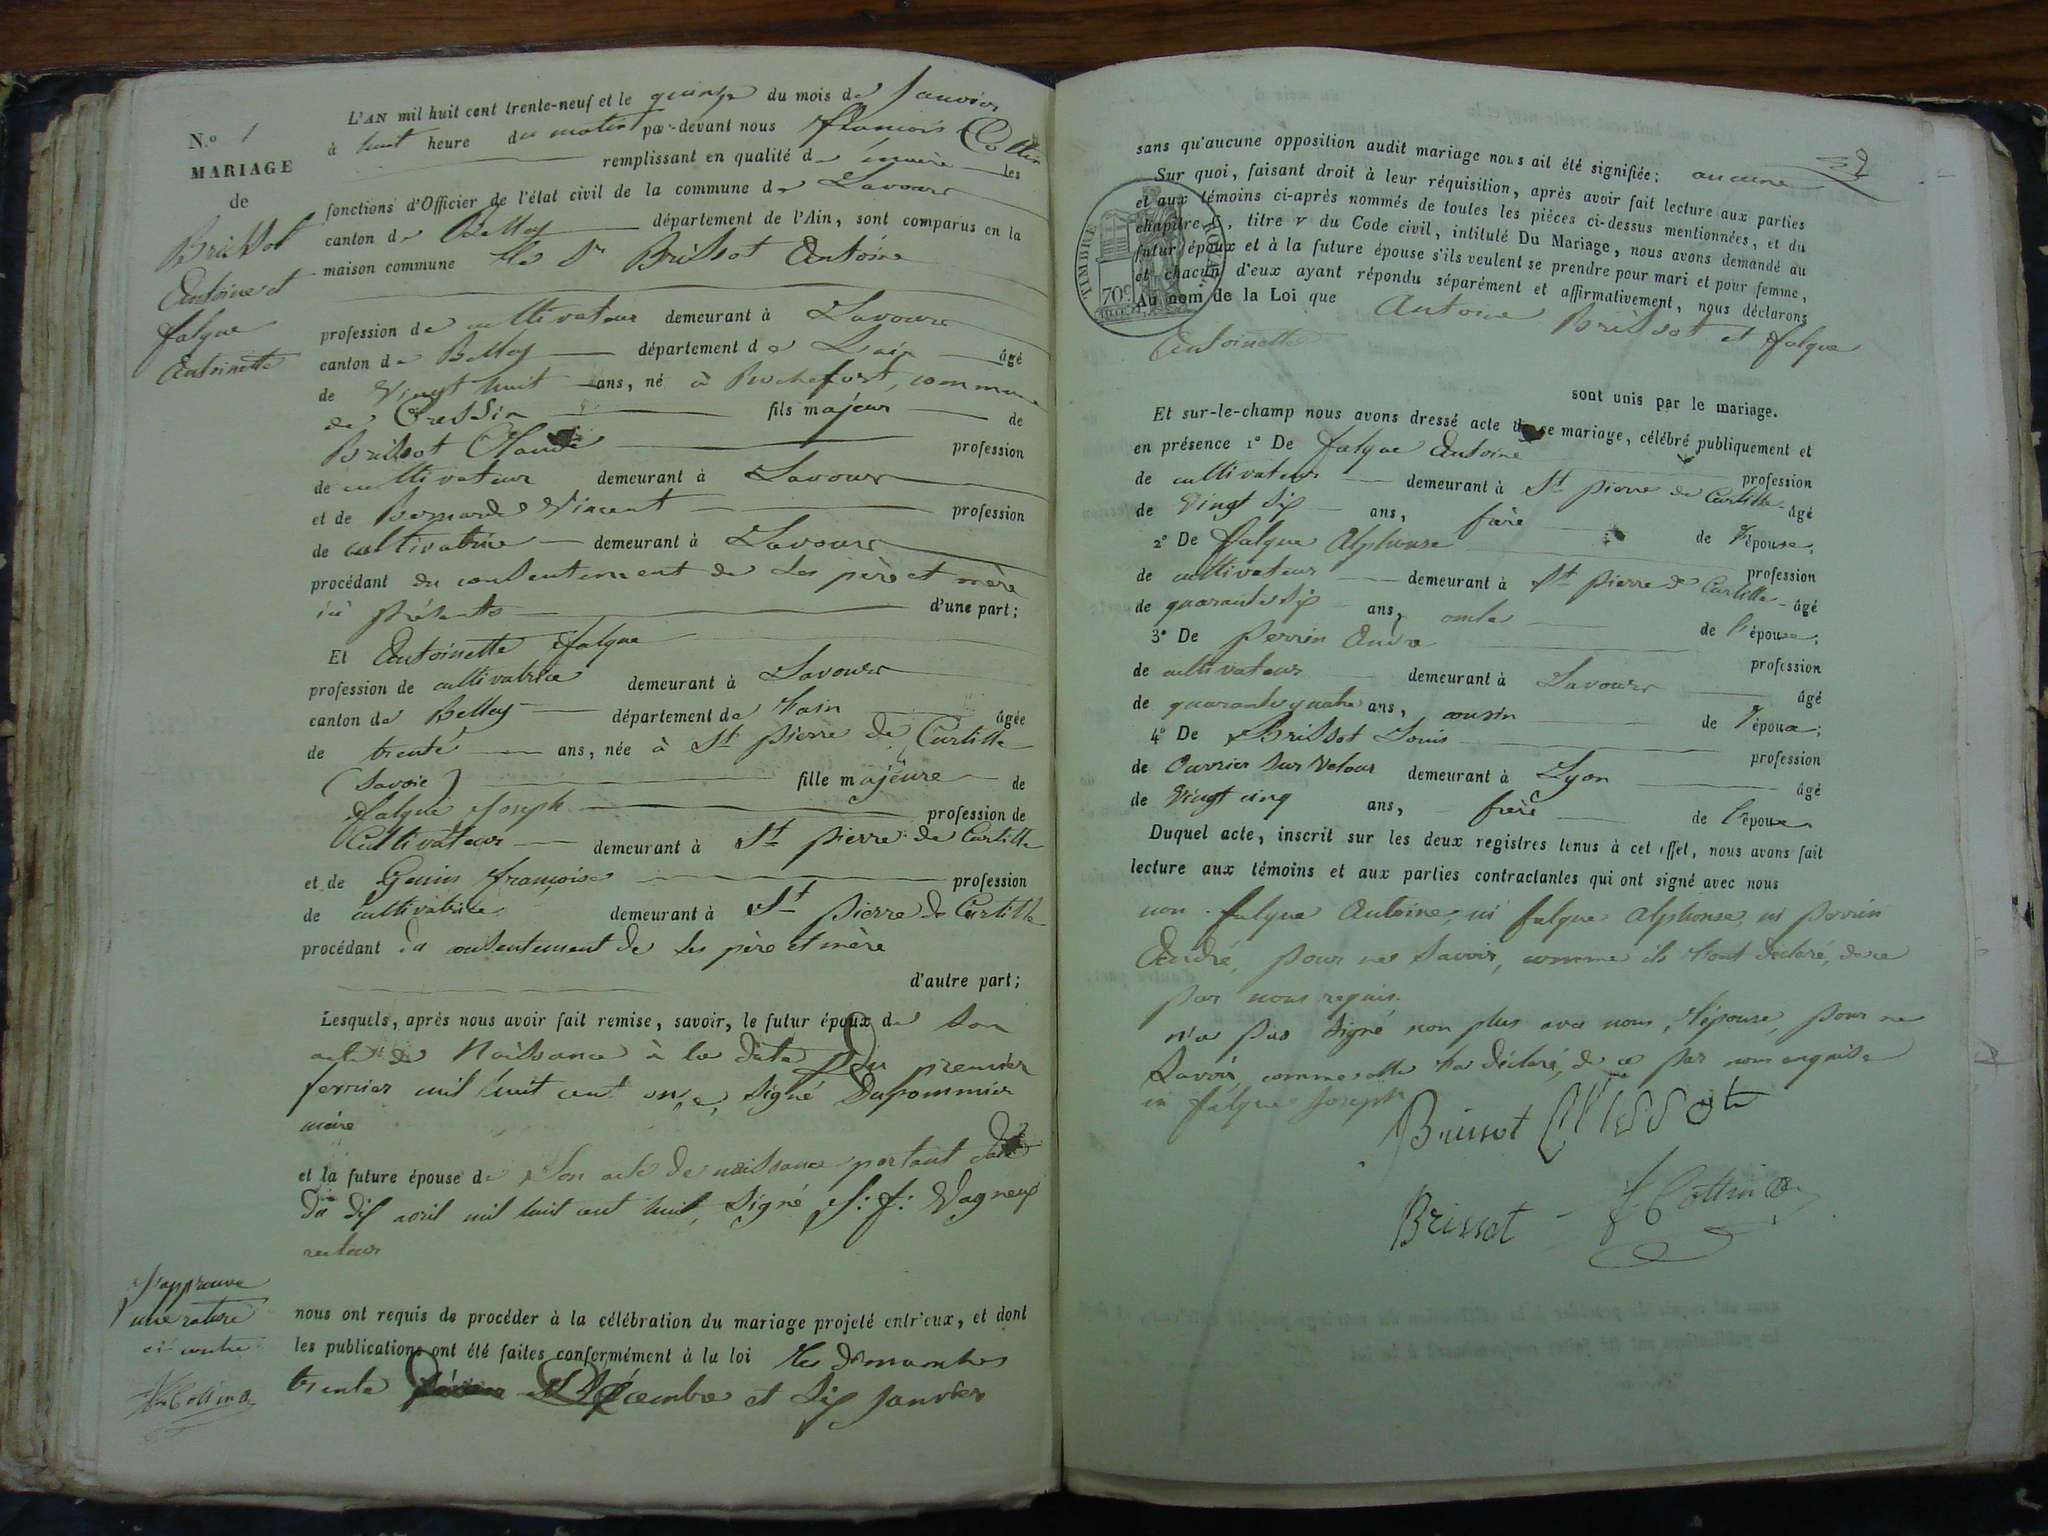 N.o 1
MARIAGE
de
Brissot
Antoine et
falque
Antoinette
L'AN mil huit cent trente-neuf et le quinze du mois de Janvier
à huit heure du matin par-devant nous françois Cottin
remplissant en qualité de maire les
fonctions d'Officier de l'état civil de la commune de Lavours
canton de Belley département de l'Ain, sont comparus en la
maison commune Le Sr Brissot Antoine
profession de cultivateur demeurant à Lavours
canton de Belley département de L'ain âgé
de Vingt huit ans, né à Rochefort, commune
de Cressin fils majeur de
Brissot Claude profession
de cultivateur demeurant à Lavours
et de Bernarde Vincent profession
de cultivatrice demeurant à Lavours
procédant du consentement de ses père et mère
ici présents d'une part;
Et Antoinette falque
profession de cultivatrice demeurant à Lavours
canton de Belley département de l'ain âgée
de trente ans, née à St pierre de Curtille
(Savoie) fille majeure de
falque Joseph profession de
Cultivateur demeurant à St pierre de Curtille
et de Genin françoise profession
de cultivatrice demeurant à St pierre de Curtille
procédant du consentement de ses père et mère
d'autre part;
Lesquels, après nous avoir fait remise, savoir, le futur époux de Son
acte de Naissance à la date du premier
fevrier mil huit cent onze, signé Dupommier
maire
et la future épouse de Son acte de naissance portant date
du dix avril mil huit cent huit, signé J: f: Vagneux
recteur
J'approuve
une rature
ci contre
f. Cottin
nous ont requis de procéder à la célébration du mariage projeté entr'eux, et dont
les publications ont été faites conformément à la loi les dimanches
trente Décembre et six Janvier
2
sans qu'aucune opposition audit mariage nous ait été signifiée: aucune
Sur quoi, faisant droit à leur réquisition, après avoir fait lecture aux parties
et aux témoins ci-après nommés de toutes les pièces ci-dessus mentionnées, et du
chapitre 6, titre v du Code civil, intitulé Du Mariage, nous avons demandé au
futur époux et à la future épouse s'ils veulent se prendre pour mari et pour femme,
et chacun d'eux ayant répondu séparément et affirmativement, nous déclarons
Au nom de la Loi que Antoine Brissot et falque
Antoinette
TIMBRE ROYAL
70c
sont unis par le mariage.
Et sur-le-champ nous avons dressé acte de ce mariage, célébré publiquement et
en présence 1° De falque Antoine profession
de cultivateur demeurant à St pierre de Curtille âgé
de Vingt six ans, frère de l'épouse,
2° De falque Alphonse profession
de cultivateur demeurant à St pierre de Curtille âgé
de quarante six ans, oncle de l'épouse,
3° De perrin André profession
de cultivateur demeurant à Lavours âgé
de quarante quatre ans, cousin de l'époux;
4° De Brissot Louis profession
de Ouvrier sur velour demeurant à Lyon âgé
de Vingt cinq ans, frère de l'époux
Duquel acte, inscrit sur les deux registres tenus à cet effet, nous avons fait
lecture aux témoins et aux parties contractantes qui ont signé avec nous
non falque Antoine, ni falque Alphonse, ni perrin
André, pour ne savoir, comme ils l'ont déclaré, de ce
par nous requis.
n'a pas signé non plus avec nous, l'épouse, pour ne
savoir, comme elle l'a déclaré, de ce par nous enquise
ni falque Joseph
Brissot Brissot
Brissot f. Cottin